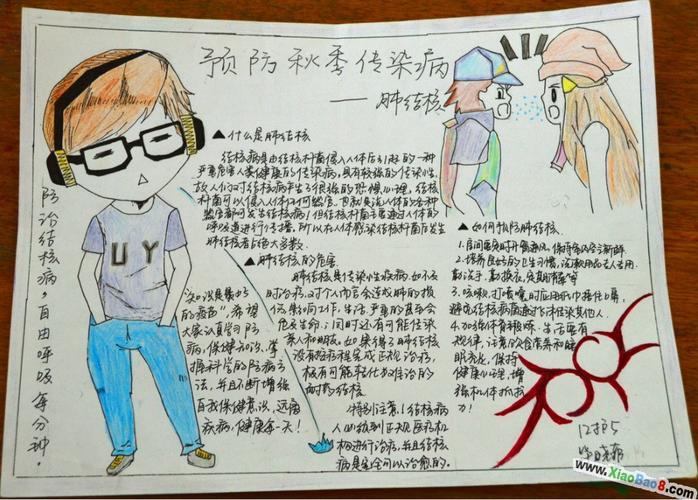 预防秋季传染病
——肺结核
▲什么是肺结核
结核病是由结核杆菌侵入人体后引起的一种
严重危害人类健康的传染病，具有较强的传染性，
故人们对结核病产生了很强的恐惧心理。结核
杆菌可以侵入人体任何器官，也就是说人体的各种
器官都可发生结核病，但结核杆菌主要通过人体的
呼吸道进行传播，所以在人体感染结核杆菌后发生
肺结核者占绝大多数。
▲肺结核的危害
肺结核具传染性疾病，如不及
时治疗，对个人而言会造成肺的损
伤，影响工作、生活，严重的甚至会
危及生命；同时还有可能传染
家人和朋友。如果得了肺结核
没有按疗程完成正规治疗，
极有可能转化为难治的
耐药结核
特别注意：结核病
人必须到正规医疗机
构进行治疗，并且结核
病是完全可以治愈的。
防治结核病，自由呼吸每分钟。
UY
"知识是最好
的疫苗"，希望
大家认真学习防
病、保健知识、掌
握科学的防病方
法，并且不断增强
自我保健意识，远离
疾病，健康每一天！
▲如何预防肺结核
1.房间要定时开窗通风，保持室内空气新鲜
2.培养良好的卫生习惯，洗漱用品专人专用
勤洗手、勤换衣、定期消毒等
3.咳嗽、打喷嚏时应用手巾捂住口鼻，
避免结核病菌通过飞沫传染其他人.
4.加强体育锻炼，生活要有
规律，注意饮食营养和睡
眠充足，保持
健康心理，增
强机体抵抗
力！
12护5
www.XiaoBao8.com